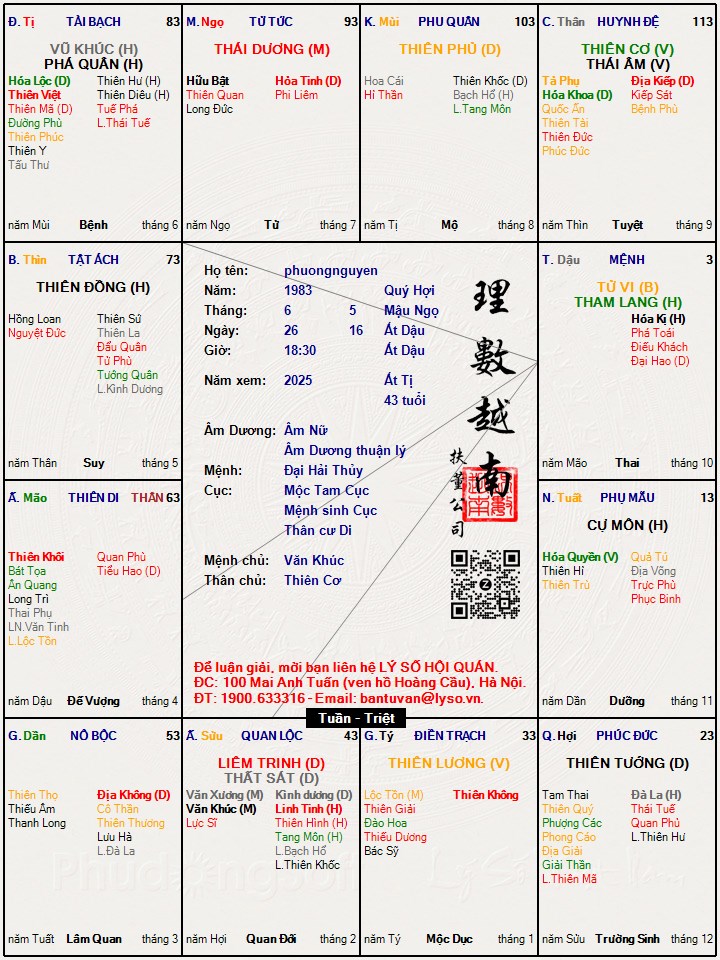 Đ. Tị TÀI BẠCH 83
VŨ KHÚC (H)
PHÁ QUÂN (H)
Hóa Lộc (D) Thiên Hư (H)
Thiên Việt Thiên Diêu (H)
Thiên Mã (D) Tuế Phá
Đường Phù L.Thái Tuế
Thiên Phúc
Thiên Y
Tấu Thư
năm Mùi Bệnh tháng 6
M. Ngọ TỬ TỨC 93
THÁI DƯƠNG (M)
Hữu Bật Hỏa Tinh (D)
Thiên Quan Phi Liêm
Long Đức
năm Ngọ Tử tháng 7
K. Mùi PHU QUÂN 103
THIÊN PHỦ (D)
Hoa Cái Thiên Khốc (D)
Hỉ Thần Bạch Hổ (H)
L.Tang Môn
năm Tị Mộ tháng 8
C. Thân HUYNH ĐỆ 113
THIÊN CƠ (V)
THÁI ÂM (V)
Tả Phụ Địa Kiếp (D)
Hóa Khoa (D) Kiếp Sát
Quốc Ấn Bệnh Phù
Thiên Tài
Thiên Đức
Phúc Đức
năm Thìn Tuyệt tháng 9
B. Thìn TẬT ÁCH 73
THIÊN ĐỒNG (H)
Hồng Loan Thiên Sứ
Nguyệt Đức Thiên La
Đẩu Quân
Tử Phù
Tướng Quân
L.Kình Dương
năm Thân Suy tháng 5
Họ tên: phuongnguyen
Năm: 1983 Quý Hợi
Tháng: 6 5 Mậu Ngọ
Ngày: 26 16 Ất Dậu
Giờ: 18:30 Ất Dậu
Năm xem: 2025 Ất Tị
43 tuổi
Âm Dương: Âm Nữ
Âm Dương thuận lý
Mệnh: Đại Hải Thủy
Cục: Mộc Tam Cục
Mệnh sinh Cục
Thân cư Di
Mệnh chủ: Văn Khúc
Thân chủ: Thiên Cơ
理數越南
扶董公司
Để luận giải, mời bạn liên hệ LÝ SỐ HỘI QUÁN.
ĐC: 100 Mai Anh Tuấn (ven hồ Hoàng Cầu), Hà Nội.
ĐT: 1900.633316 - Email: bantuvan@lyso.vn.
T. Dậu MỆNH 3
TỬ VI (B)
THAM LANG (H)
Hóa Kị (H)
Phá Toái
Điếu Khách
Đại Hao (D)
năm Mão Thai tháng 10
Ấ. Mão THIÊN DI THÂN 63
Thiên Khôi Quan Phù
Bát Tọa Tiểu Hao (D)
Ân Quang
Long Trì
Thai Phụ
LN.Văn Tinh
L.Lộc Tồn
năm Dậu Đế Vượng tháng 4
N. Tuất PHỤ MẪU 13
CỰ MÔN (H)
Hóa Quyền (V) Quả Tú
Thiên Hỉ Địa Võng
Thiên Trù Trực Phù
Phục Binh
năm Dần Dưỡng tháng 11
Tuần - Triệt
G. Dần NÔ BỘC 53
Thiên Thọ Địa Không (D)
Thiếu Âm Cô Thần
Thanh Long Thiên Thương
Lưu Hà
L.Đà La
năm Tuất Lâm Quan tháng 3
Ấ. Sửu QUAN LỘC 43
LIÊM TRINH (D)
THẤT SÁT (D)
Văn Xương (M) Kình dương (D)
Văn Khúc (M) Linh Tinh (H)
Lực Sĩ Thiên Hình (H)
Tang Môn (H)
L.Bạch Hổ
L.Thiên Khốc
năm Hợi Quan Đới tháng 2
G. Tý ĐIỀN TRẠCH 33
THIÊN LƯƠNG (V)
Lộc Tồn (M) Thiên Không
Thiên Giải
Đào Hoa
Thiếu Dương
Bác Sỹ
năm Tý Mộc Dục tháng 1
Q. Hợi PHÚC ĐỨC 23
THIÊN TƯỚNG (D)
Tam Thai Đà La (H)
Thiên Quý Thái Tuế
Phượng Các Quan Phủ
Phong Cáo L.Thiên Hư
Địa Giải
Giải Thần
L.Thiên Mã
năm Sửu Trường Sinh tháng 12